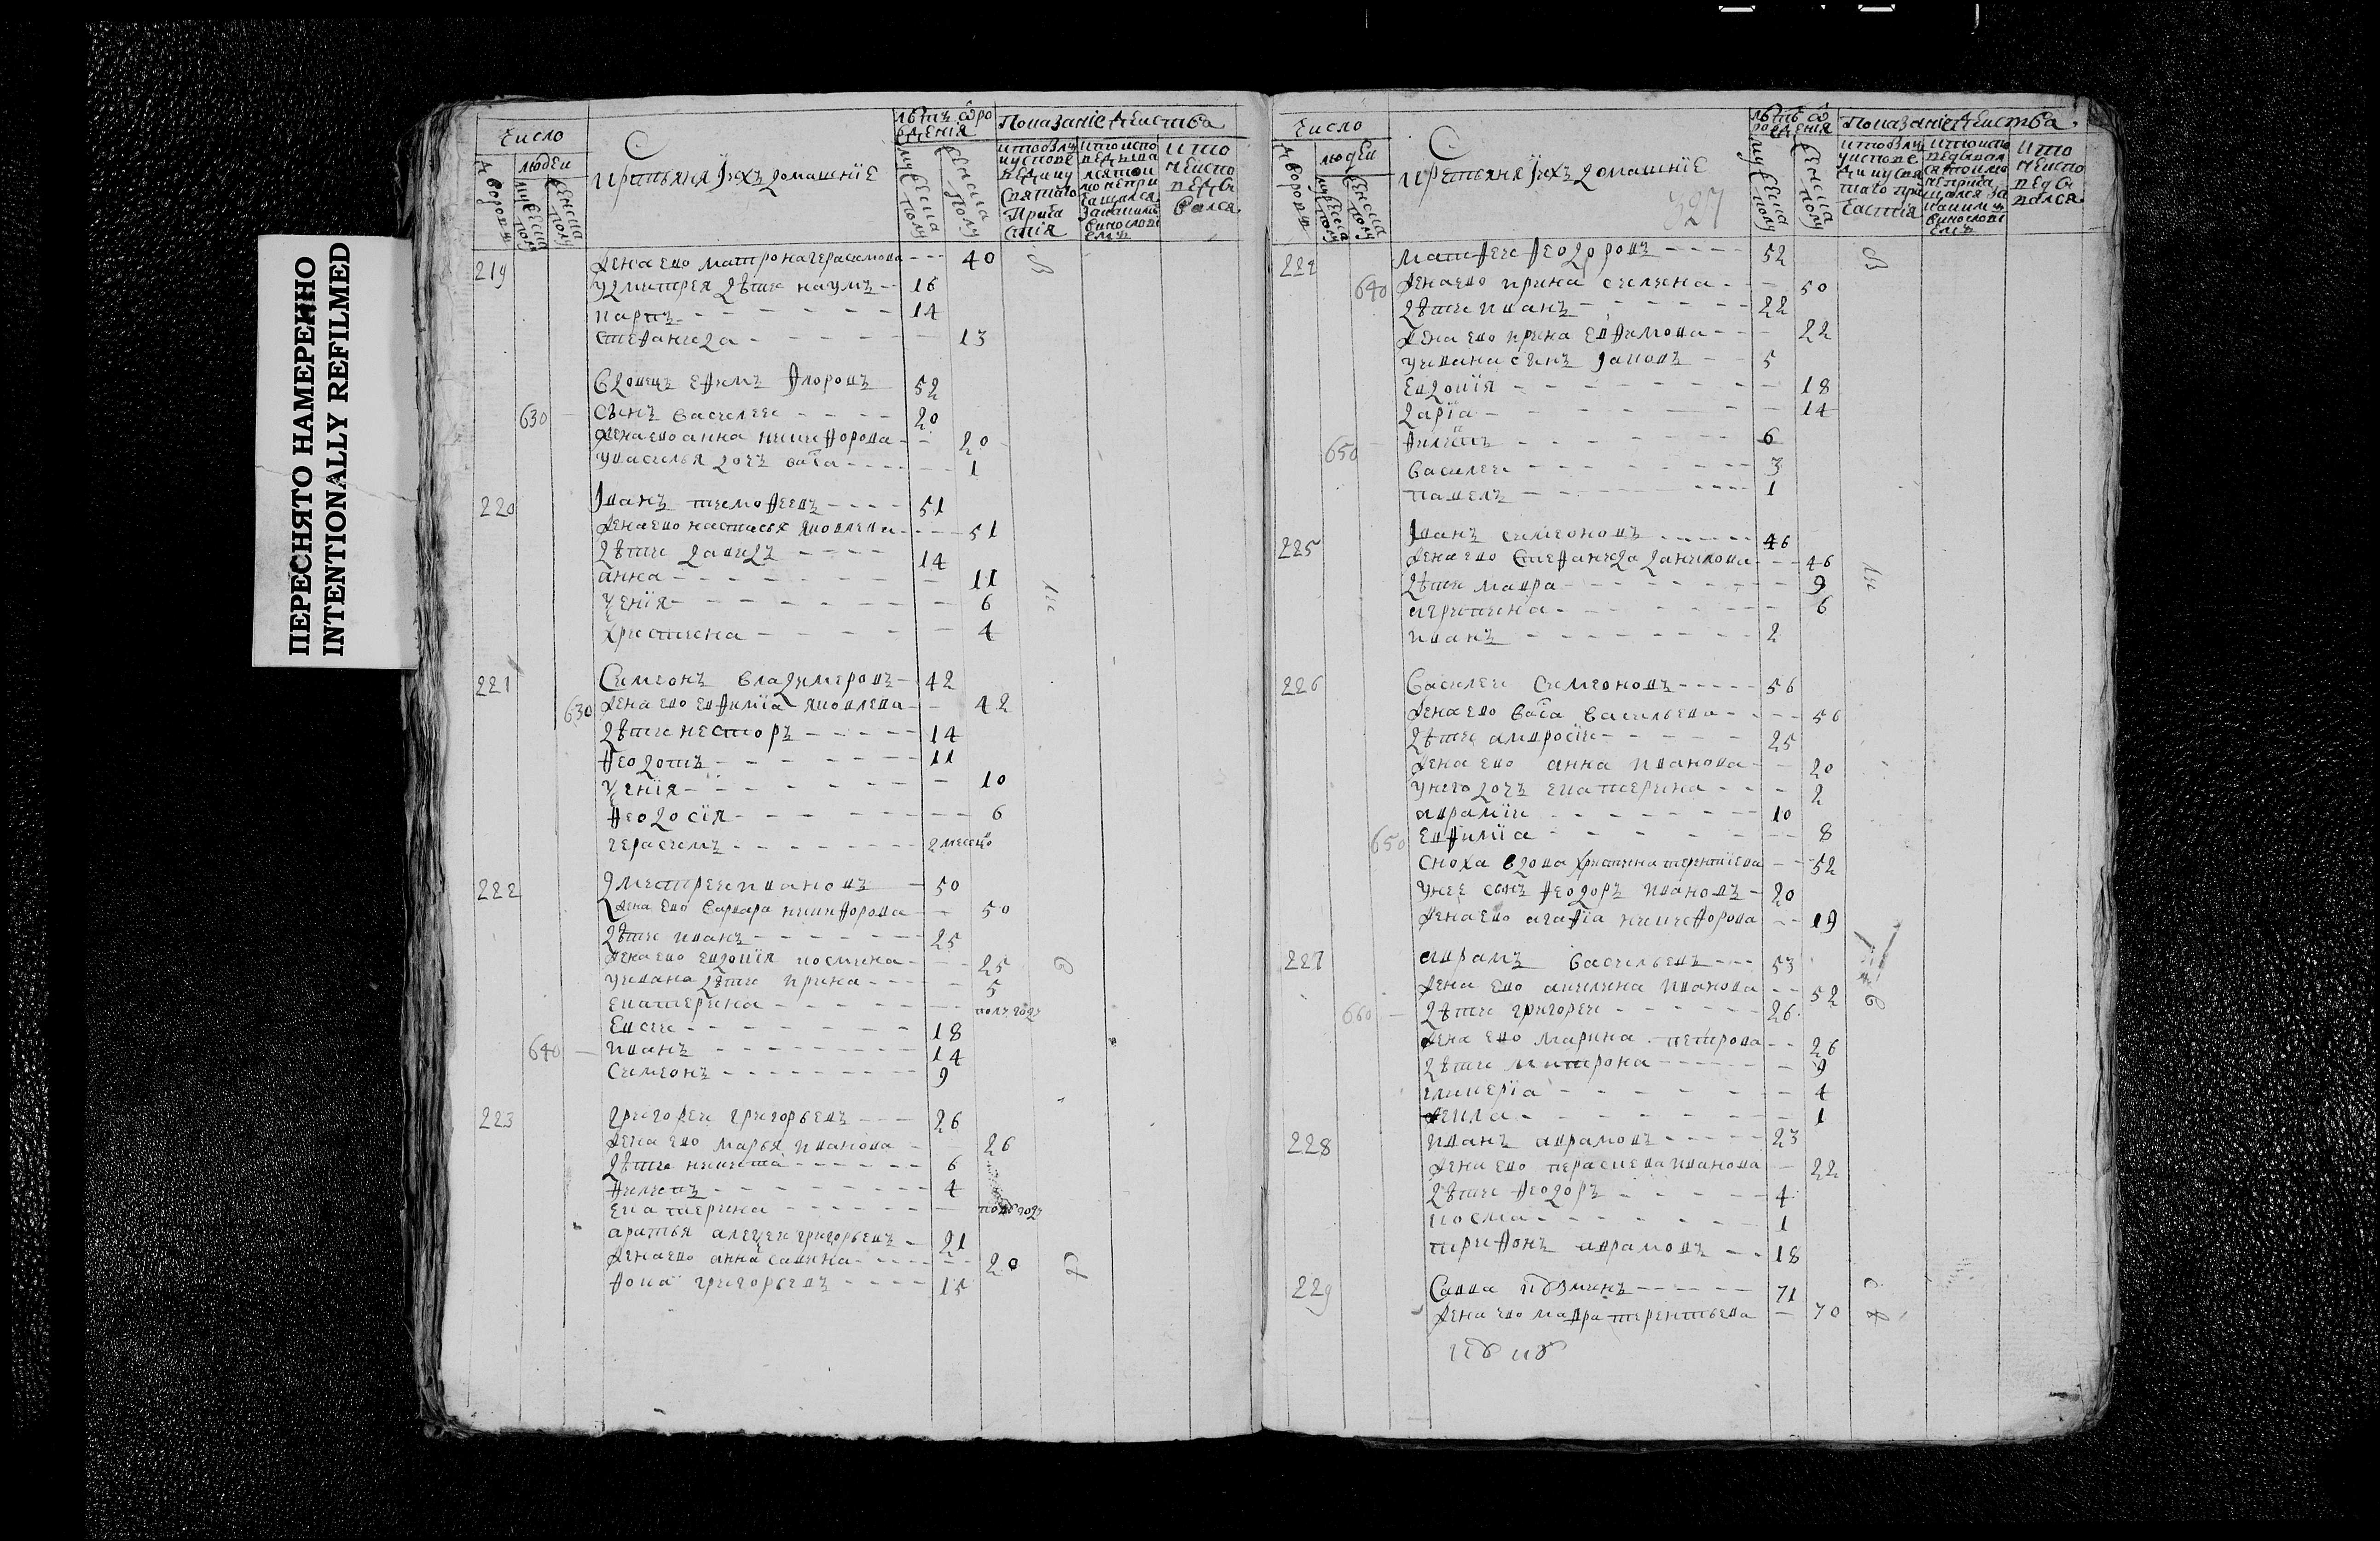 ПЕРЕСНЯТО НАМЕРЕННО
INTENTIONALLY REFILMED
число
людеи
крестьяня їихъ домашнїе
лѣтъ ѿро
ждения
Показанїе деиства
219
жена ево матрона герасимова 40
у дмитрея дѣти наумъ 16
карпъ 14
стефанида 13
вдовецъ ефимъ флоровъ 52
630 сынъ василеи 20
жена ево анна никифорова 20
у василья дочъ васа 1
220 Їванъ тимофеевъ 51
жена ево настасья яковлева 51
дѣти давидъ 14
анна 11
ѯенїя 6
христина 4
221 Симеонъ владимеровъ 42
630 жена ево евфимїа яковлева 42
дѣти несторъ 14
феодотъ 11
ѯенїя 10
феодосїя 6
герасимъ 2 месецо
222 дмитреи ивановъ 50
жена ево варвара никифорова 50
дѣти иванъ 25
жена ево евдокїя космина 25
у ивана дѣти ирина 5
екатерина полъ года
Евсеи 18
640 иванъ 14
Симеонъ 9
223 григореи григорьевъ 26
жена ево марья иванова 26
дѣти никита 6
филипъ 4
екатерина полъ года
братья алеѯеи григорьевъ 21
жена ево анна савина 20
фока григорьевъ 15
число
людеи
крестьяня їихъ домашнїе
327
лѣтъ ѿ
рождения
Показание деиства
224 матфеи феодоровъ 52
640 жена ево ирина силина 50
дѣти иванъ 22
жена ево ирина евфимова 22
у ивана сынъ їаковъ 5
евдокїя 18
дарїа 14
650 филипъ 6
василеи 3
павелъ 1
225 Їванъ симеоновъ 46
жена ево стефанида данилова 46
дѣти мавра 9
агрипина 6
иванъ 2
226 василеи симеоновъ 56
жена ево васа васильева 56
дѣти амвросїи 25
жена ево анна иванова 20
у него дочъ екатерина 2
аврамїи 10
650 евфимїа 8
сноха вдова христина терентїева 52
у нее сынъ феодоръ ивановъ 20
жена ево агафїа никифорова 19
227 аврамъ васильевъ 53
жена ево акилина иванова 52
660 дѣти григореи 26
жена ево марина петрова 26
дѣти митрона 9
гликерїа 4
фекла 1
228 иванъ аврамовъ 23
жена ево пераскева иванова 22
дѣти феодоръ 4
косма 1
трифонъ аврамовъ 18
229 Савва козминъ 71
жена ево мавра терентьева 70